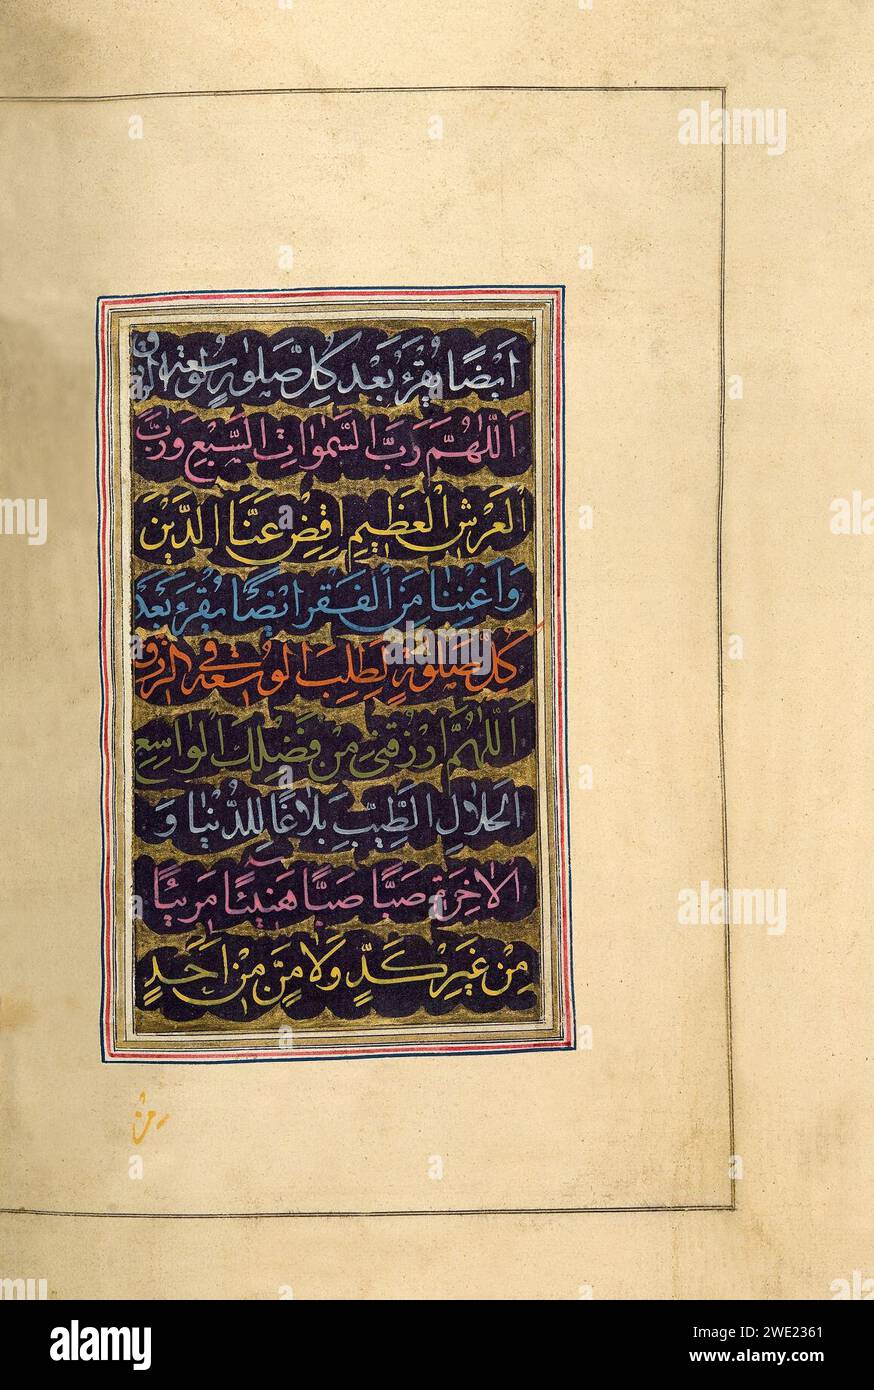 اَيْضًا يُقْرَءُ بَعْدَ كُلِّ صَلٰوةٍ لِوُسْعَةِ الرِّزْقِ
اَللّٰهُمَّ رَبَّ السَّمٰوَاتِ السَّبْعِ وَرَبَّ
الْعَرْشِ الْعَظِيمِ اِقْضِ عَنَّا الدَّيْنَ
وَاَغْنِنَا مِنَ الْفَقْرِ اَيْضًا يُقْرَءُ بَعْدَ
كُلِّ صَلٰوةٍ لِطَلَبِ الْوُسْعَةِ فِي الرِّزْقِ
اَللّٰهُمَّ ارْزُقْنِي مِنْ فَضْلِكَ الْوَاسِعِ
الْحَلَالِ الطَّيِّبِ بَلَاغًا لِلدُّنْيَا وَ
الْاٰخِرَةِ صَبًّا صَبًّا هَنِيئًا مَرِيئًا
مِنْ غَيْرِ كَدٍّ وَلَا مَنٍّ مِنْ اَحَدٍ
من
alamy
Image ID: 2WE2361
www.alamy.com